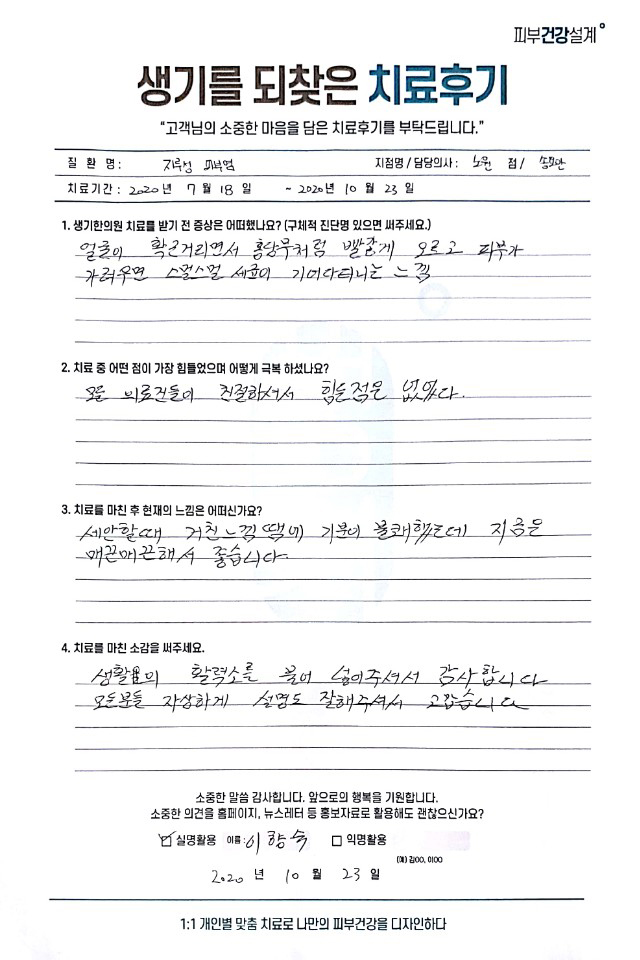 피부건강설계
생기를 되찾은 치료후기
“고객님의 소중한 마음을 담은 치료후기를 부탁드립니다.”
질 환 명 : 지루성 피부염 지점명 / 담당의사 : 노원 점 /
치료기간 : 2020 년 7 월 18 일 ~ 2020 년 10 월 23 일
1. 생기한의원 치료를 받기 전 증상은 어떠했나요? (구체적 진단명 있으면 써주세요.)
얼굴이 확끈거리면서 홍당무처럼 빨갛게 오르고 피부가
가려우면 스멀스멀 세균이 기어다니는 느낌
2. 치료 중 어떤 점이 가장 힘들었으며 어떻게 극복 하셨나요?
모든 의료진들이 친절하셔서 힘든점은 없었다.
3. 치료를 마친 후 현재의 느낌은 어떠신가요?
세안할때 거친느낌 땜에 기분이 불쾌했는데 지금은
매끈매끈해서 좋습니다.
4. 치료를 마친 소감을 써주세요.
생활의 활력소를 불어 넣어주셔서 감사합니다
모든분들 자상하게 설명도 잘해주셔서 고맙습니다
소중한 말씀 감사합니다. 앞으로의 행복을 기원합니다.
소중한 의견을 홈페이지, 뉴스레터 등 홍보자료로 활용해도 괜찮으신가요?
실명활용 이름 : 이향숙 익명활용
(예) 김OO, 이OO
2020 년 10 월 23 일
1:1 개인별 맞춤 치료로 나만의 피부건강을 디자인하다